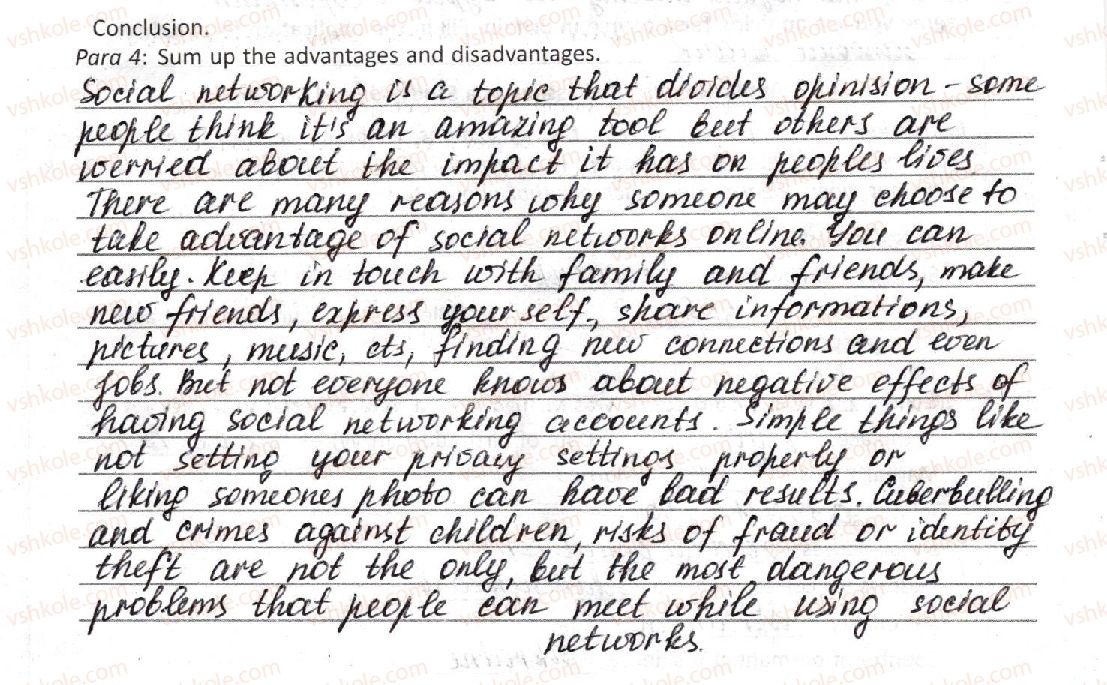 Conclusion.
Para 4: Sum up the advantages and disadvantages.
Social networking is a topic that divides opinision - some
people think it's an amazing tool but others are
worried about the impact it has on peoples lives
There are many reasons why someone may choose to
take advantage of social networks online. You can
easily. Keep in touch with family and friends, make
new friends, express your self., share informations,
pictures, music, ets, finding new connections and even
jobs. But not everyone knows about negative effects of
having social networking accounts. Simple things like
not setting your privacy settings properly or
liking someones photo can have bad results. Cuberbulling
and crimes against children, risks of fraud or identity
theft are not the only, but the most dangerous
problems that people can meet while using social
networks.